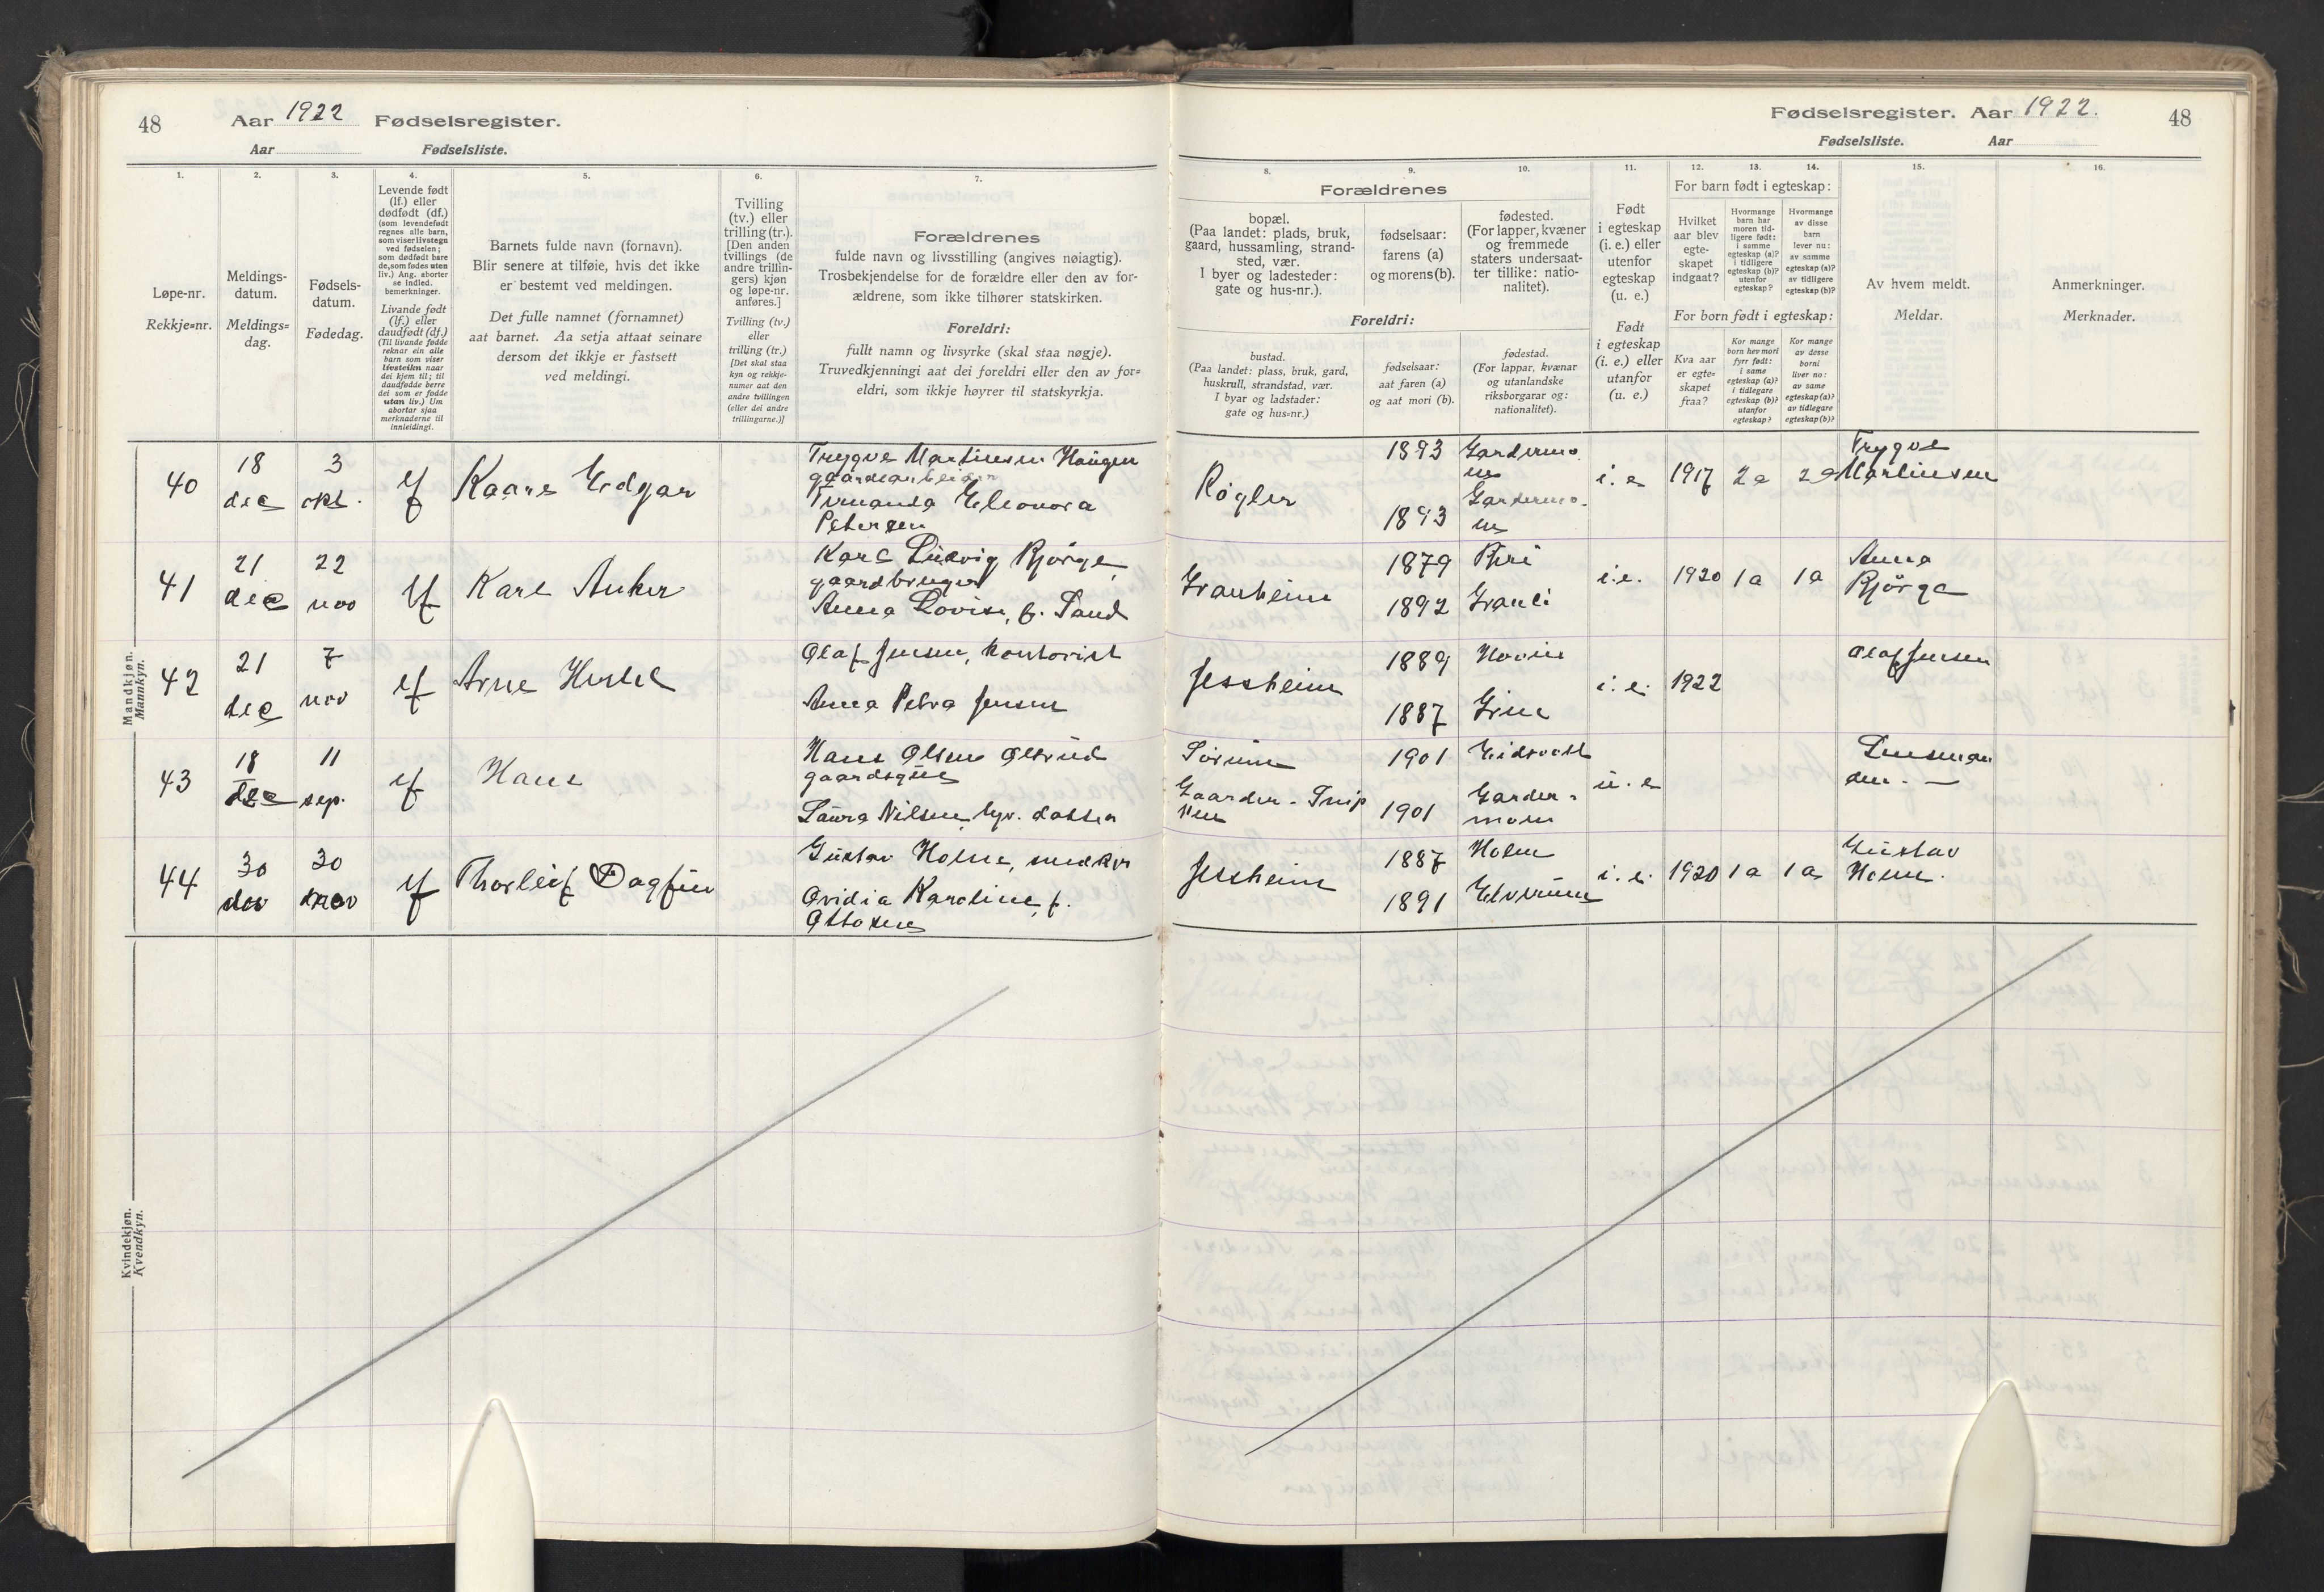 48 Aar 1922 Fødselsregister.
Aar Fødselsliste.
Fødselsregister. Aar 1922. 48
Fødselsliste. Aar
1.
Løpe-nr.
Rekkje=nr.
2.
Meldings-
datum.
Meldings=
dag.
3.
Fødsels-
datum.
Fødedag.
4.
Levende født
(lf.) eller
dødfødt (df.)
(som levendefødt
regnes alle barn,
som viser livstegn
ved fødselen;
som dødfødt bare
de, som fødes uten
liv.) Ang. aborter
se indled.
bemerkninger.
Livande født
(lf.) eller
daudfødt (df.)
(Til livande fødde
reknar ein alle
barn som viser
livsteikn naar
dei kjem til; til
daudfødde berre
dei som er fødde
utan liv.) Um
abortar sjaa
merknaderne til
innleidingi.
5.
Barnets fulde navn (fornavn).
Blir senere at tilføie, hvis det ikke
er bestemt ved meldingen.
Det fulle namnet (fornamnet)
aat barnet. Aa setja attaat seinare
dersom det ikkje er fastsett
ved meldingi.
6.
Tvilling
(tv.) eller
trilling (tr.).
[Den anden
tvillings (de
andre trillin-
gers) kjøn
og løpe-nr.
anføres.]
Tvilling (tv.)
eller
trilling (tr.)
[Det skal staa
kyn og rekkje-
numer aat den
andre tvillingen
(eller dei andre
trillingarne.)]
7.
Forældrenes
fulde navn og livsstilling (angives nøiagtig).
Trosbekjendelse for de forældre eller den av for-
ældrene, som ikke tilhører statskirken.
Foreldri:
fullt namn og livsyrke (skal staa nøgje).
Truvedkjenningi aat dei foreldri eller den av for=
eldri, som ikkje høyrer til statskyrkja.
8. 9. 10.
Forældrenes
bopæl.
(Paa landet: plads, bruk,
gaard, hussamling, strand-
sted, vær.
I byer og ladesteder:
gate og hus-nr.).
fødselsaar:
farens (a)
og morens (b).
fødested.
(For lapper, kvæner
og fremmede
staters undersaat-
ter tillike: natio-
nalitet).
Foreldri:
bustad.
(Paa landet: plass, bruk, gard,
huskrull, strandstad, vær.
I byar og ladstader:
gate og hus=nr.)
fødselsaar:
aat faren (a)
og aat mori (b).
fødestad.
(For lappar, kvænar
og utanlandske
riksborgarar og:
nationalitet).
11.
Født
i egteskap
(i. e.) eller
utenfor
egteskap
(u. e.)
Født
i egteskap
(i. e.) eller
utanfor
(u. e.)
12. 13. 14.
For barn født i egteskap:
Hvilket
aar blev
egte-
skapet
indgaat?
Hvormange
barn har
moren tid-
ligere født:
i samme
egteskap (a)?
i tidligere
egteskap (b)?
utenfor
egteskap?
Hvormange
av disse
barn
lever nu:
av samme
egteskap (a)?
av tidligere
egteskap (b)?
For born født i egteskap:
Kva aar
er egte-
skapet
fraa?
Kor mange
born hev mori
fyrr født:
i same
egteskap (a)?
i tidlegare
egteskap (b)?
utanfor
egteskap?
Kor mange
av desse
borni
liver no:
av same
egteskap (a)?
av tidlegare
egteskap (b)?
15.
Av hvem meldt.
Meldar.
16.
Anmerkninger.
Merknader.
Mandkjøn.
Mannkyn.
40 18 dec 3 okt. lf Kaare Edgar
Trygve Martinsen Haugen
gaardsarbeider
Fernanda Eleonora
Petersen
Røgler 1893 Gardermo-
en
1893 Gardermo-
en
i. e 1917 2a 2a Trygve
Martinsen
41 21 dec 22 nov lf Karl Anker
Karl Ludvig Bjørge,
gaardbruger
Anna Lovise, f. Sand
Granheim 1879 Biri
1892 Granli
i. e. 1920 1a 1a Anna
Bjørge
42 21 dec 7 nov lf Arne
Olaf Jensen, kontorist
Anna Petra Jensen
Jessheim 1889 Hovin
1887 Grue
i. e. 1922 Olaf Jensen
43 18 dec 11 sep. lf Hans
Hans Olsen Olsrud
gaardsgut
Laura Nilsen, tjv. datter
Sørum 1901 Eidsvold
Gaarder - Snip
1901 Garder-
moen
u. e Lensman
den. —
44 30 30 lf Thorleif Dagfin
Gustav Holm, snedker
Ovidia Karoline, f.
Ottosen
Jessheim 1887 Holm
1891 Elverum
i. e. 1920 1a 1a Gustav
Holm.
Kvindekjøn.
Kvendkyn.